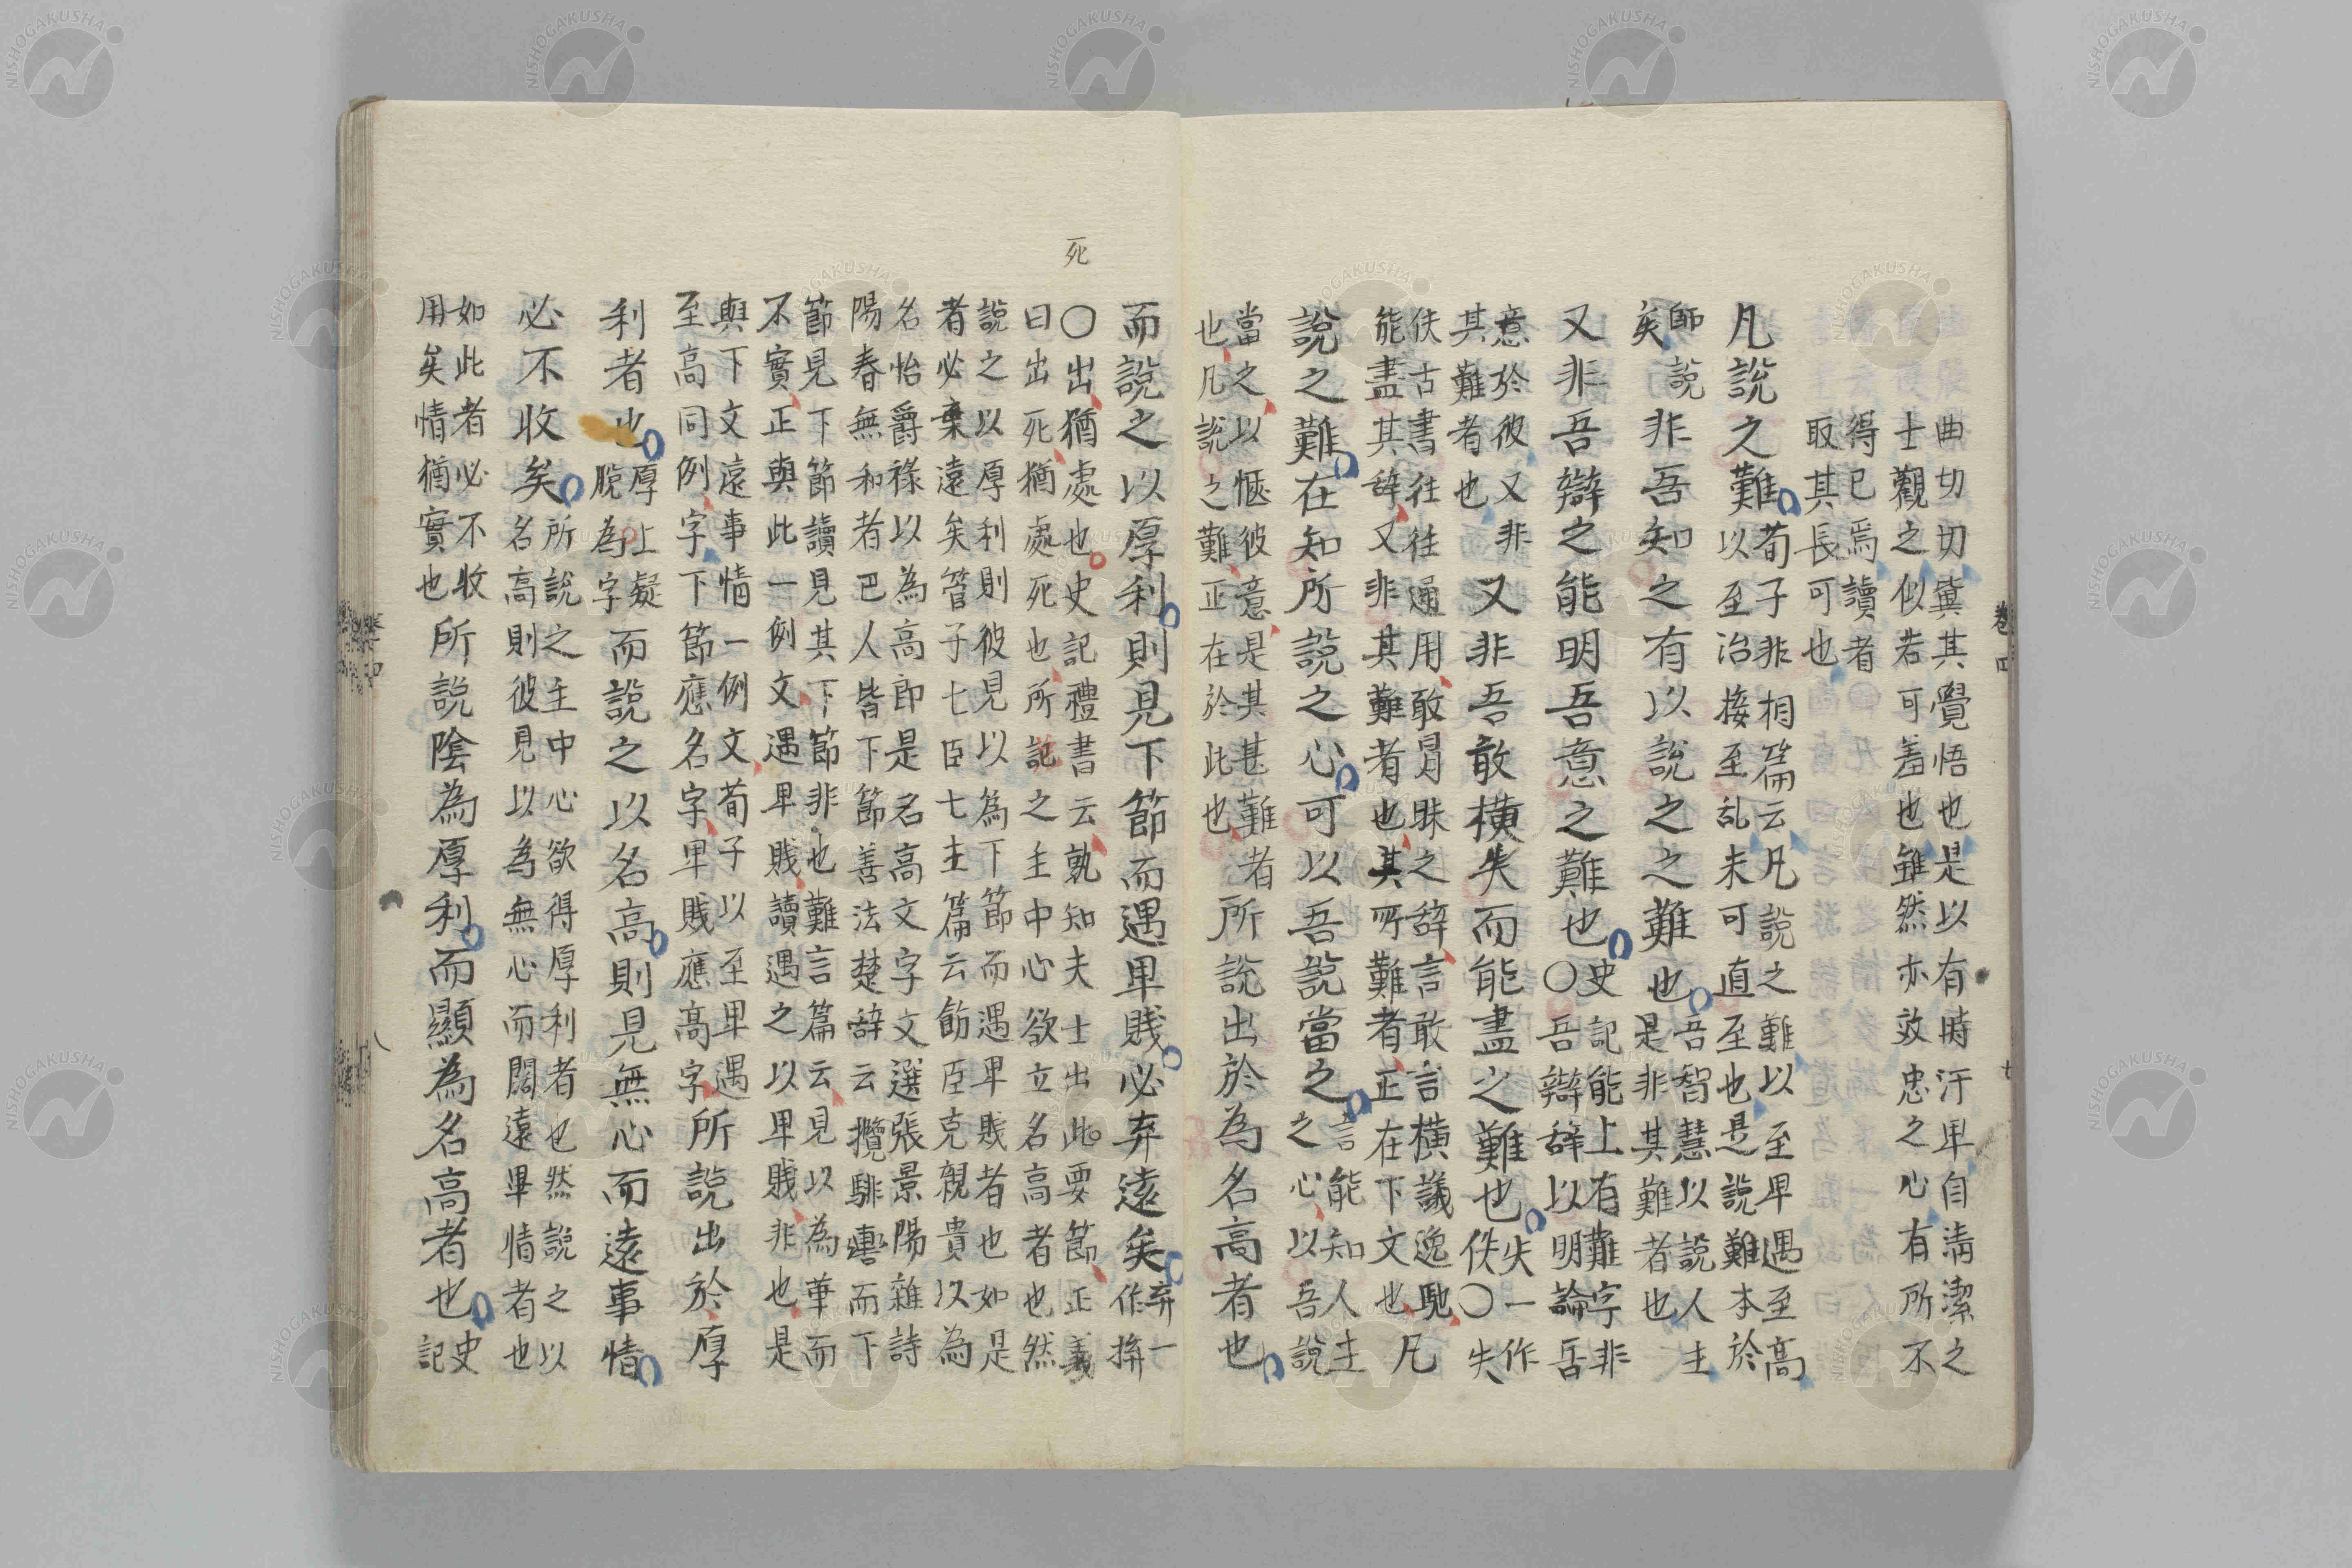 曲切切冀其覺悟也是以有時汗卑自淸潔之
士觀之似若可羞也雖然亦效忠之心有所不
得已焉讀者
取其長可也
凡說之難
荀子非相篇云凡說之難以至卑遇至高
以至治接至乱未可直至也是說難本於
師說
矣
非吾知之有以說之之難也
吾智慧以說人主
是非其難者也
又非吾辯之能明吾意之難也
史記能上有難字非
〇吾辯辞以明論吾
意於彼又非
其難者也
又非吾敢横失而能盡之難也
失一作
佚〇失
佚古書往往通用敢冒昧之辞言敢言横議逸馳凡
能盡其辞又非其難者也其所難者正在下文也
說之難在知所說之心可以吾說當之
言能知人主
之心以吾說
當之以愜彼意是其甚難者
也凡說之難正在於此也
所說出於為名高者也
卷四
七
而說之以厚利則見下節而遇卑賎必弃遠矣
弃一
作捹
死
〇出猶處也史記禮書云孰知夫士出此要節正義
曰出死猶處死也所說之主中心欲立名高者也然
說之以厚利則彼見以為下節而遇卑賎者也如是
者必棄遠矣管子七臣七主篇云飾臣克親貴以為
名怡爵祿以為高即是名高文字文選張景陽雜詩
陽春無和者巴人皆下節善法楚辞云攬騑轡而下
節見下節讀見其下節非也難言篇云見以為華而
不實正與此一例文遇卑賎讀遇之以卑賎非也是
與下文遠事情一例文荀子以至卑遇
至高同例字下節應名字卑賎應高字
所說出於厚
利者也
厚上疑
脫為字
而說之以名高則見無心而遠事情
必不收矣
所說之主中心欲得厚利者也然說之以
名高則彼見以為無心而闊遠畢情者也
如此者必不收
用矣情猶實也
所說陰為厚利而顯為名高者也
史
記
八